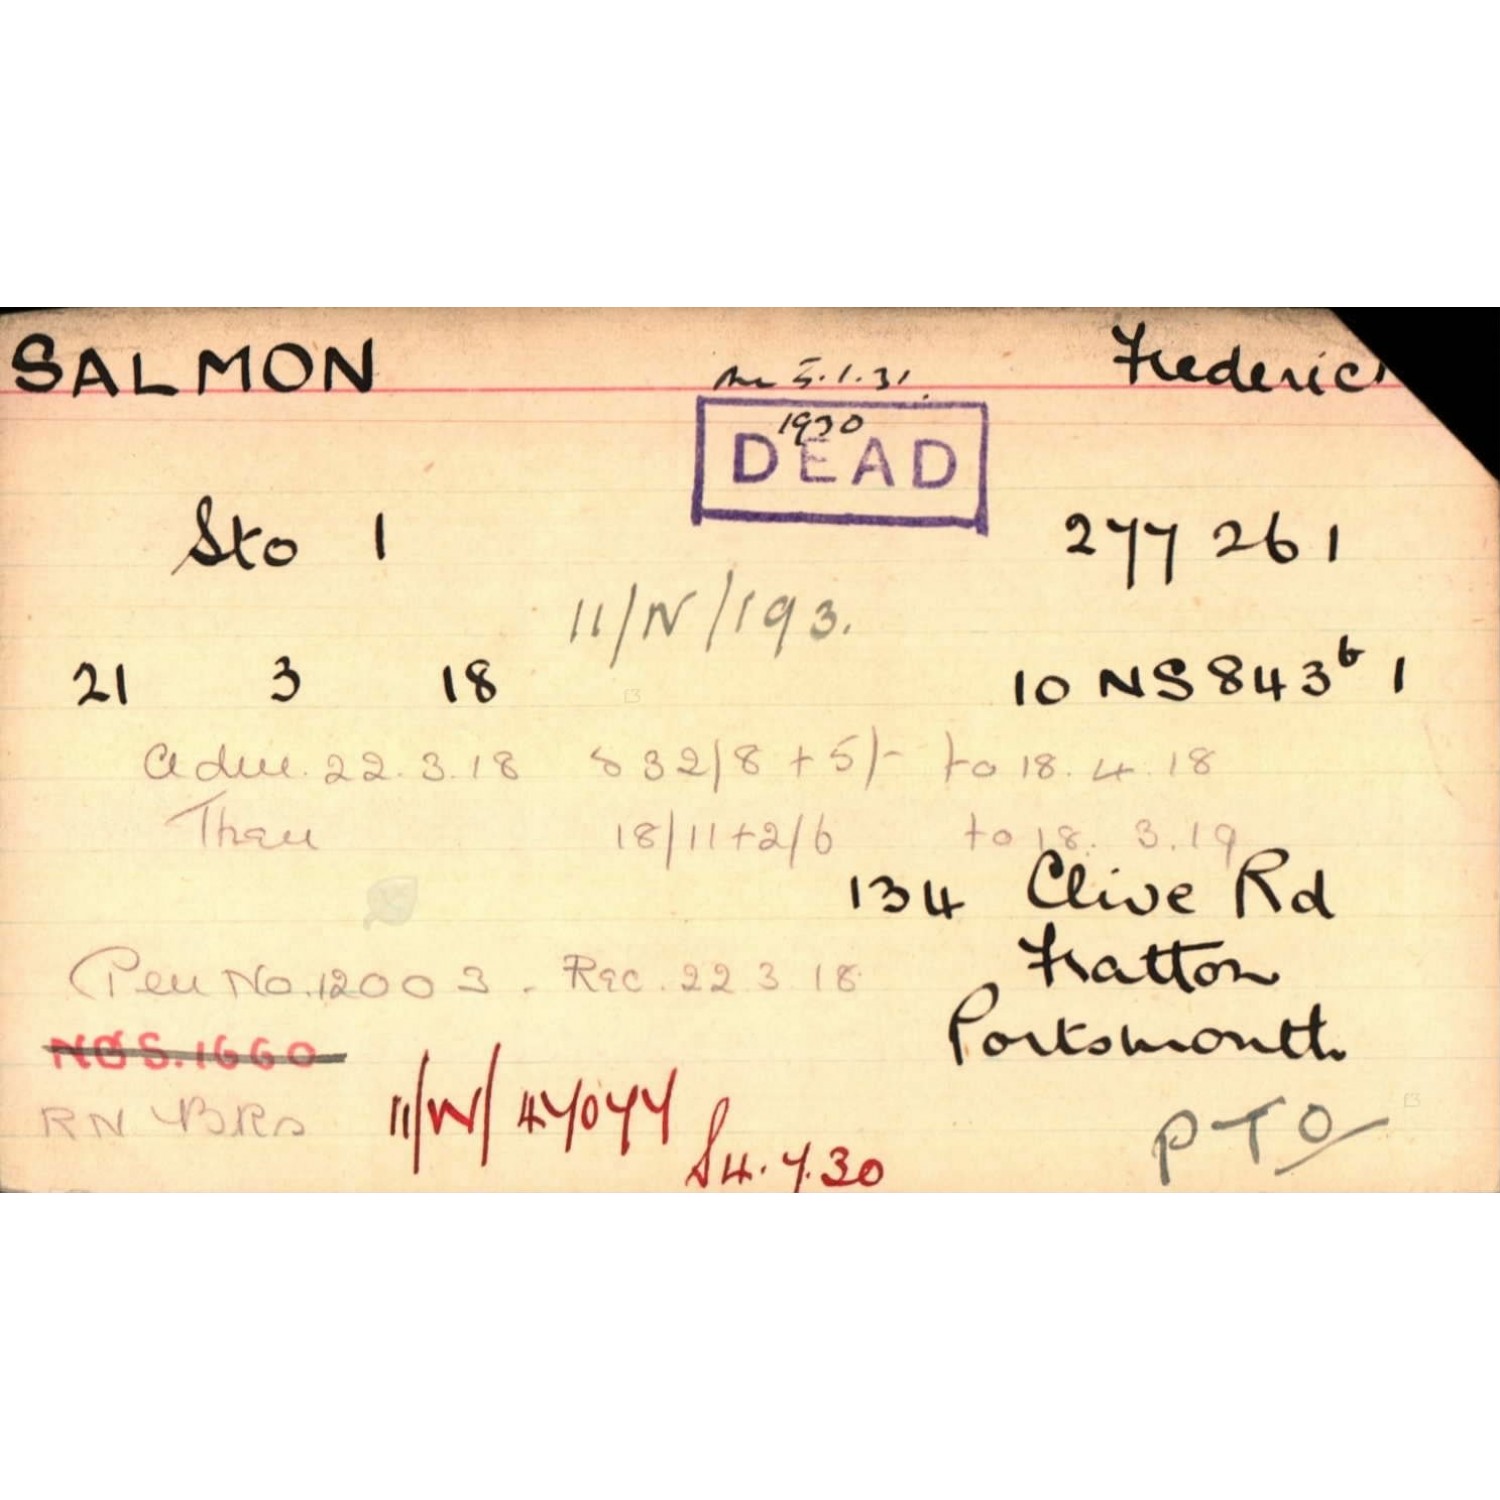 SALMON Frederick
5.1.31.
1930
DEAD
Sto 1 277 261
11/N/193.
21 3 18 10 NS 843⁶ 1
Adm. 22.3.18 @ 32/8 + 5/- to 18.4.18
Then 18/11 + 2/6 to 18.3.19
134 Clive Rd
Fratton
Pen No. 12003. Rec. 22 3 18
Portsmouth
NOS. 1660
RN
11/W/47077
S 4.7.30
PTO